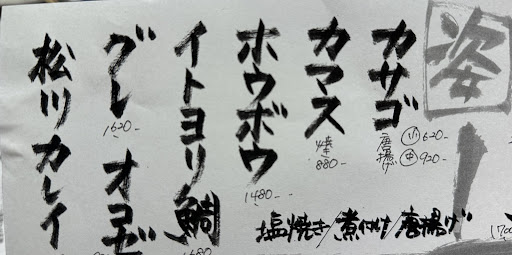 姿!
カサゴ
唐揚げ 小 620-
中 920-
カマス
焼 880-
ホウボウ
1480-
イトヨリ鯛
1680
グレ
1620-
オコゼ
松川カレイ
塩焼き/煮付け/唐揚げ